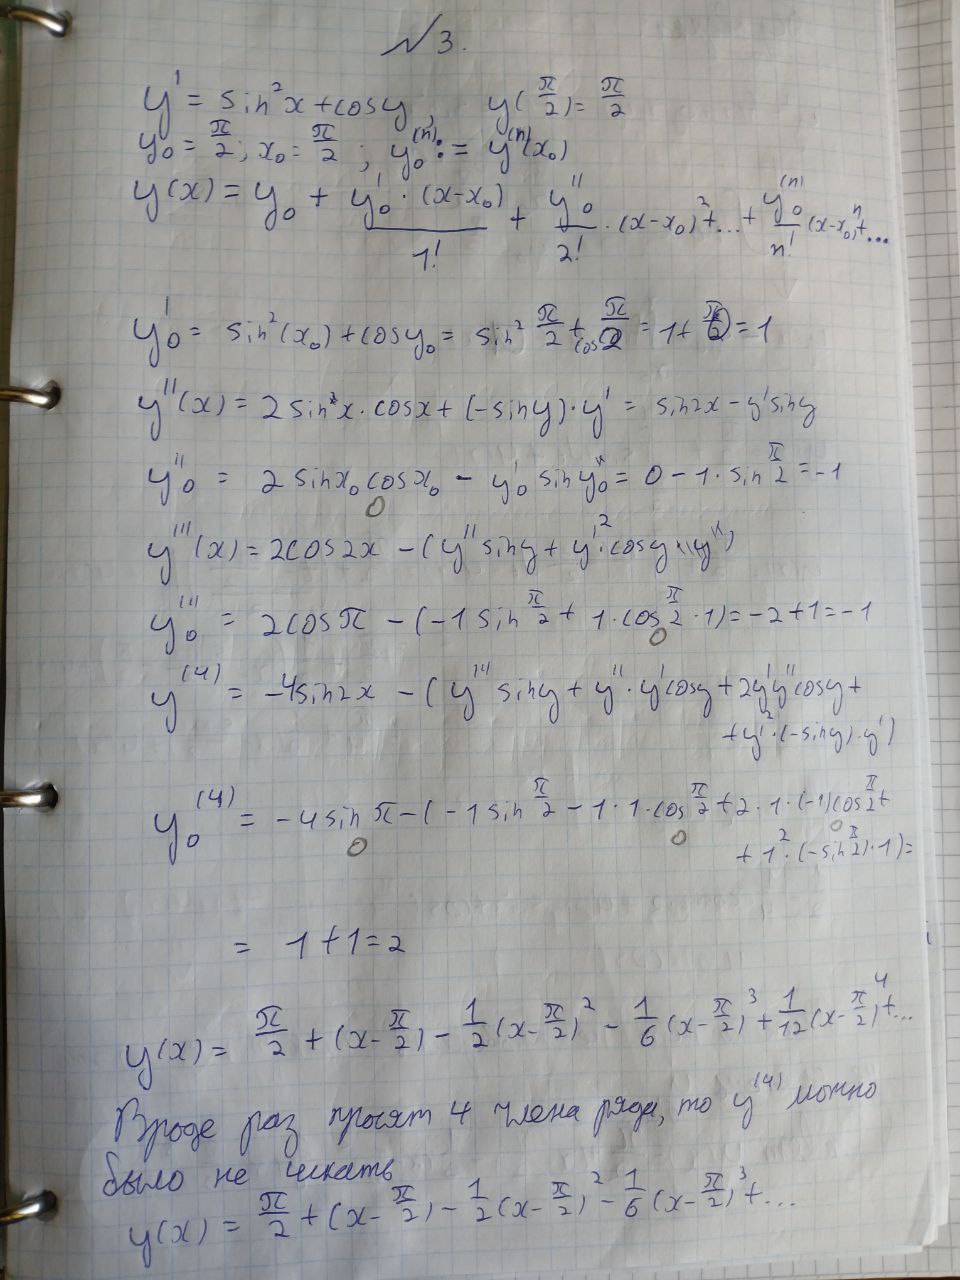 №3.
y' = sin²x + cosy, y(π/2) = π/2
y₀ = π/2; x₀ = π/2; y₀⁽ⁿ⁾ := y⁽ⁿ⁾(x₀)
y(x) = y₀ + y₀'·(x-x₀)/1! + y₀''/2!·(x-x₀)² + ... + y₀⁽ⁿ⁾/n!(x-x₀)ⁿ + ...
y₀' = sin²(x₀) + cosy₀ = sin² π/2 + cos π/2 = 1 + = 1
y''(x) = 2sinx·cosx + (-siny)·y' = sin2x - y'siny
y₀'' = 2sinx₀cosx₀ - y₀'siny₀ = 0 - 1·sin π/2 = -1
0
y'''(x) = 2cos2x - (y''siny + y'²·cosy)
y₀''' = 2cosπ - (-1sin π/2 + 1·cos π/2·1) = -2+1 = -1
0
y⁽⁴⁾ = -4sin2x - (y'''siny + y''·y'cosy + 2y'y''cosy +
+ y'²·(-siny)·y')
y₀⁽⁴⁾ = -4sinπ - (-1sin π/2 - 1·1·cos π/2 + 2·1·(-1)cos π/2 +
0 0 0
+ 1²·(-sin π/2)·1) =
= 1+1 = 2
y(x) = π/2 + (x-π/2) - 1/2(x-π/2)² - 1/6(x-π/2)³ + 1/12(x-π/2)⁴ + ...
Вроде раз просят 4 члена ряда, то y⁽⁴⁾ можно
было не искать
y(x) = π/2 + (x-π/2) - 1/2(x-π/2)² - 1/6(x-π/2)³ + ...